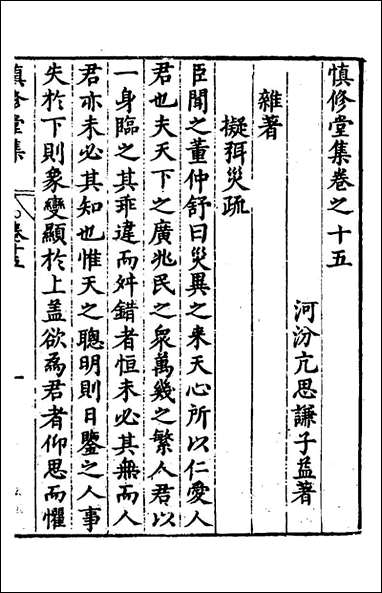 慎修堂集卷之十五
河汾亢思謙子益著
雜著
擬弭災疏
臣聞之董仲舒曰災異之来天心所以仁愛人
君也夫天下之廣兆民之衆萬幾之繁人君以
一身臨之其乖違而舛錯者恒未必其無而人
君亦未必其知也惟天之聰明則日鑒之人事
失於下則象變顯於上盖欲為君者仰思而懼
慎修堂集
卷十五
一